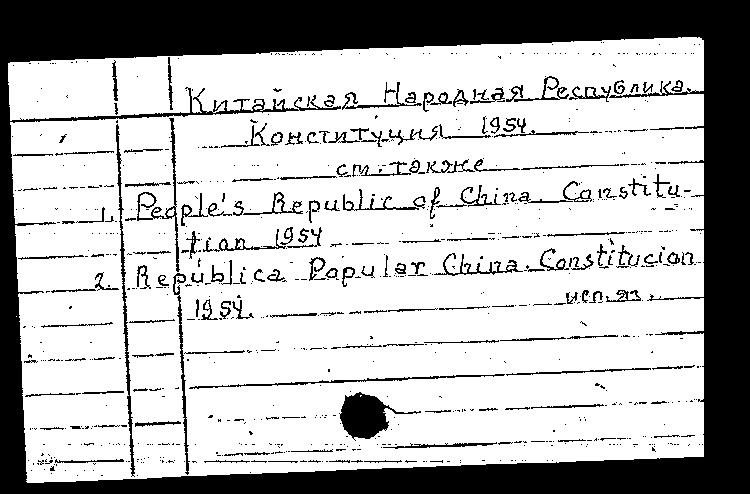 Китайская Народная Республика.
Конституция 1954.
см. также
1. People's Republic of China. Constitu-
tion 1954
2. República Popular China. Constitucion
1954. исп. яз.